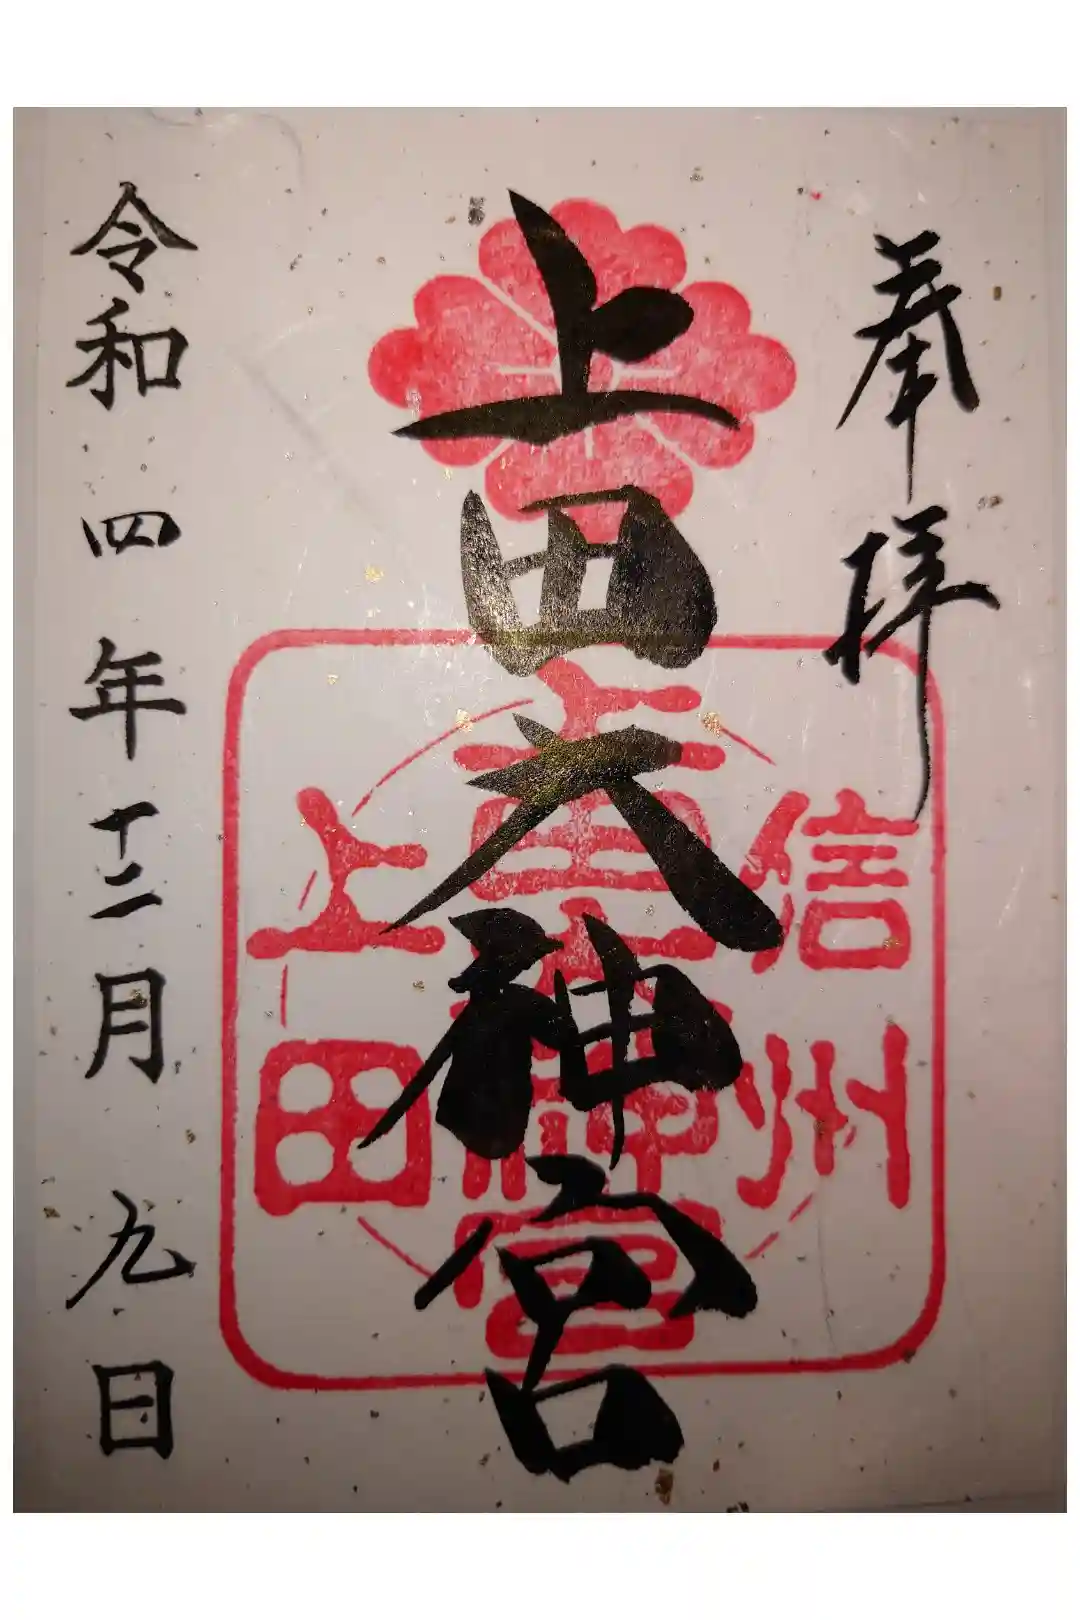 奉拝
上田大神宮
信州
上田大神宮
上田
令和四年十二月九日